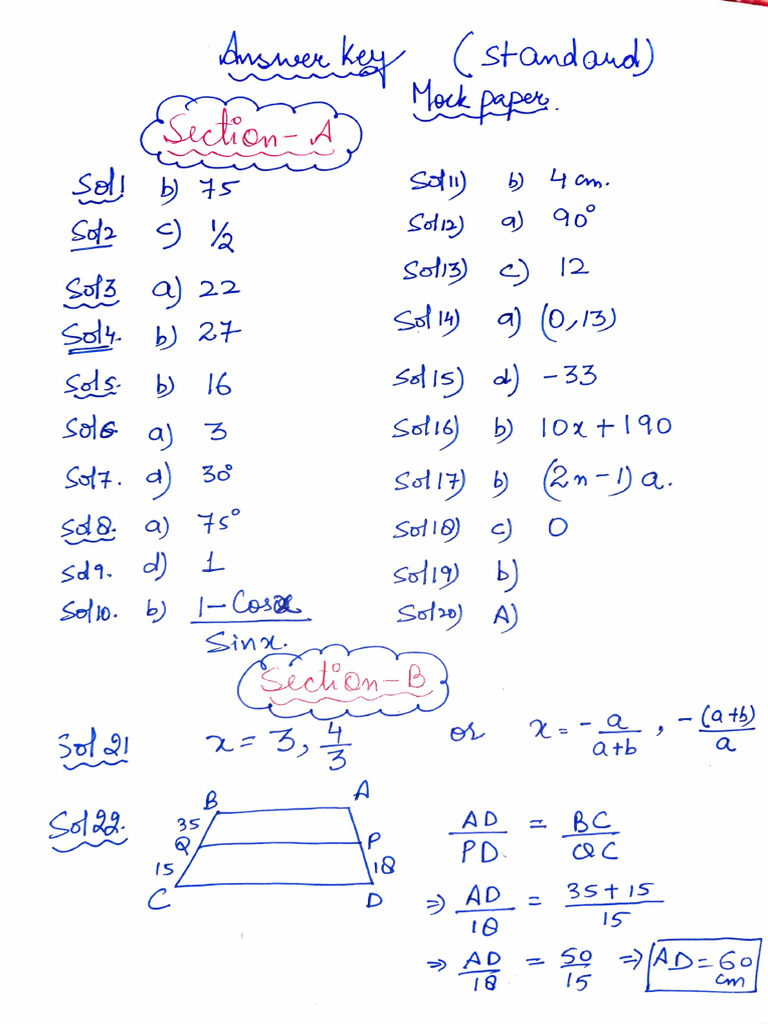 Answer Key (Standard)
Mock paper.
Section-A
Sol1 b) 75
Sol2 c) 1/2
Sol3 a) 22
Sol4. b) 27
Sol5. b) 16
Sol6 a) 3
Sol7. d) 30°
Sol8. a) 75°
Sol9. d) 1
Sol10. b) 1-Cosx / Sinx.
Sol11) b) 4 cm.
Sol12) a) 90°
Sol13) c) 12
Sol14) a) (0,13)
Sol15) d) -33
Sol16) b) 10x+190
Sol17) b) (2n-1)a.
Sol18) c) 0
Sol19) b)
Sol20) A)
Section-B
Sol21 x = 3, 4/3 or x = -a/(a+b), -(a+b)/a
Sol22.
B A
35
Q P
15 18
C D
AD/PD. = BC/QC
⇒ AD/18 = (35+15)/15
⇒ AD/18 = 50/15 ⇒ AD = 60 cm